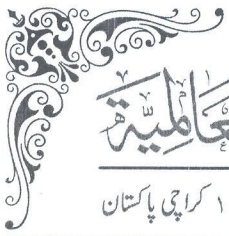 عَالَمِيَّة
۱ کراچی پاکستان